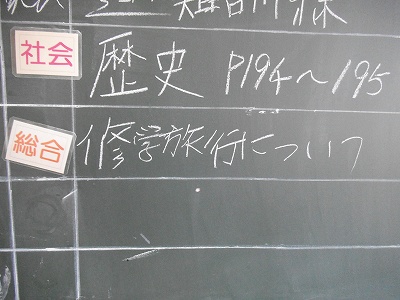 社会 歴史 P194～195
総合 修学旅行について